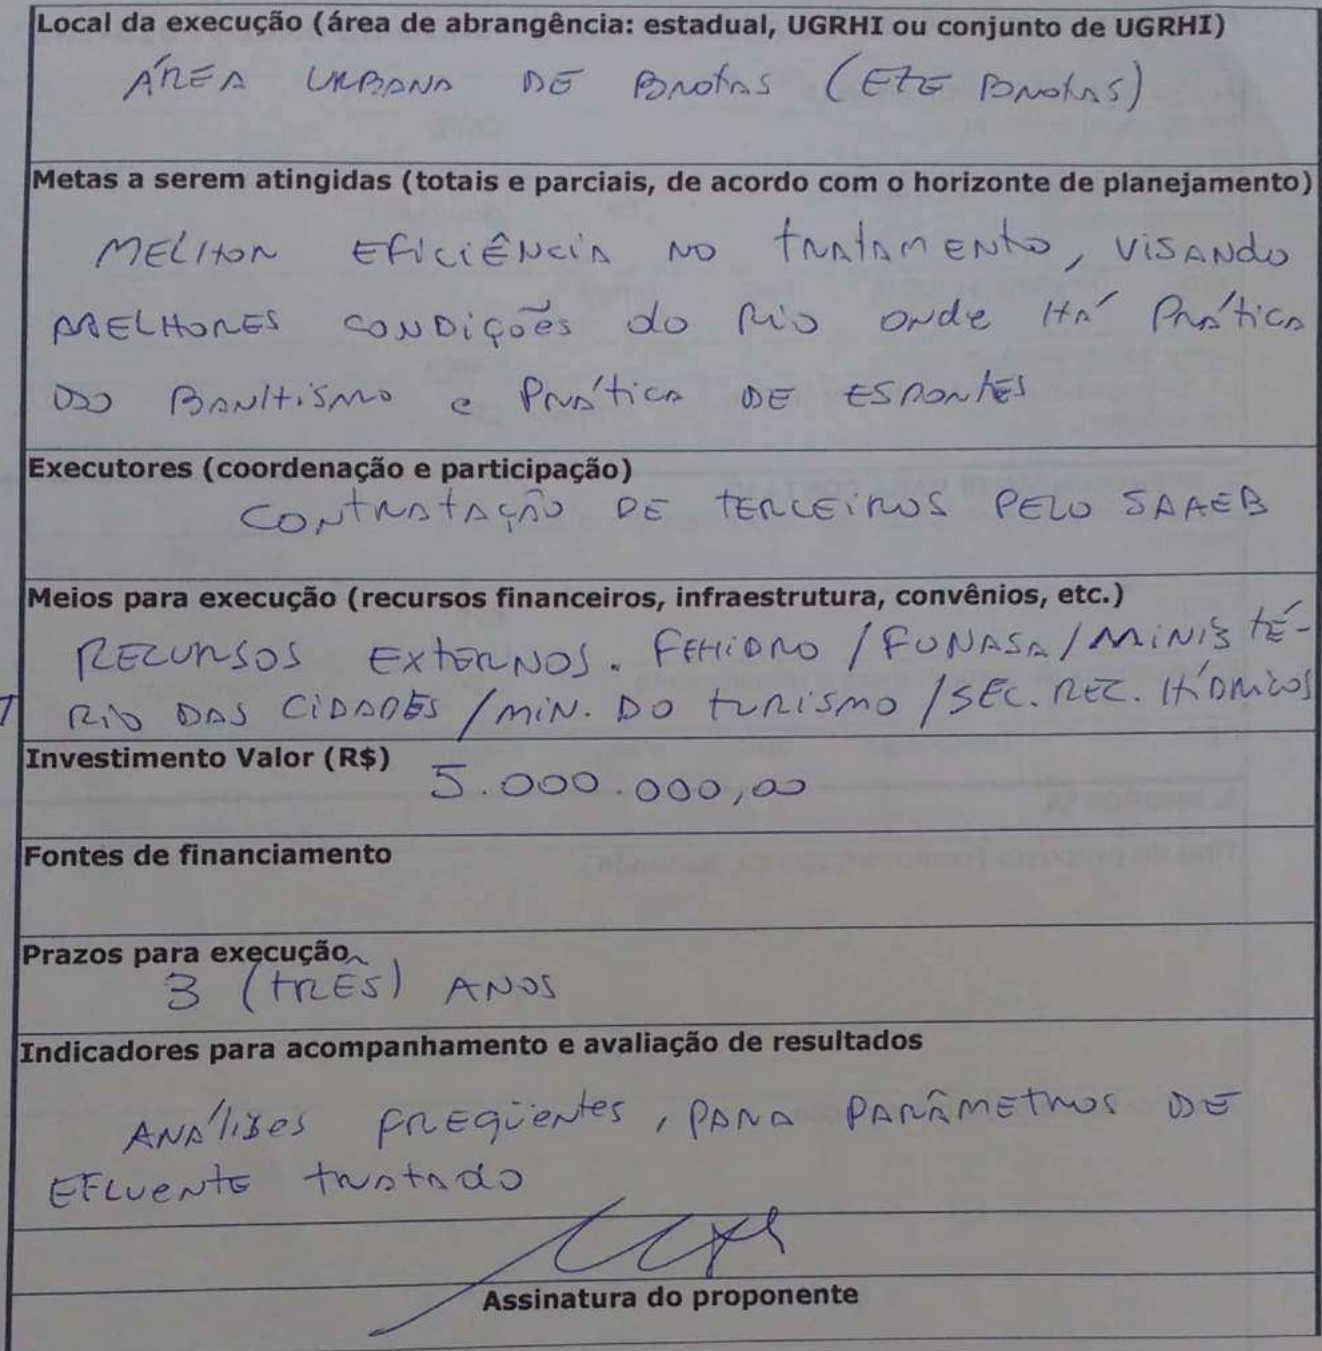 Local da execução (área de abrangência: estadual, UGRHI ou conjunto de UGRHI)
ÁREA URBANA DE BROTAS (ETE BROTAS)
Metas a serem atingidas (totais e parciais, de acordo com o horizonte de planejamento)
MELHOR EFICIÊNCIA NO TRATAMENTO, VISANDO
MELHORES CONDIÇÕES do RIO ONDE HÁ PRÁTICA
DO BANHISMO e PRÁTICA DE ESPORTES
Executores (coordenação e participação)
CONTRATAÇÃO DE TERCEIROS PELO SAAEB
Meios para execução (recursos financeiros, infraestrutura, convênios, etc.)
RECURSOS EXTERNOS. FEHIDRO / FUNASA / MINISTÉ-
RIO DAS CIDADES / MIN. DO TURISMO / SEC. REC. HÍDRICOS
Investimento Valor (R$) 5.000.000,00
Fontes de financiamento
Prazos para execução
3 (TRÊS) ANOS
Indicadores para acompanhamento e avaliação de resultados
ANÁLISES FREQÜENTES, PARA PARÂMETROS DE
EFLUENTE TRATADO
Assinatura do proponente